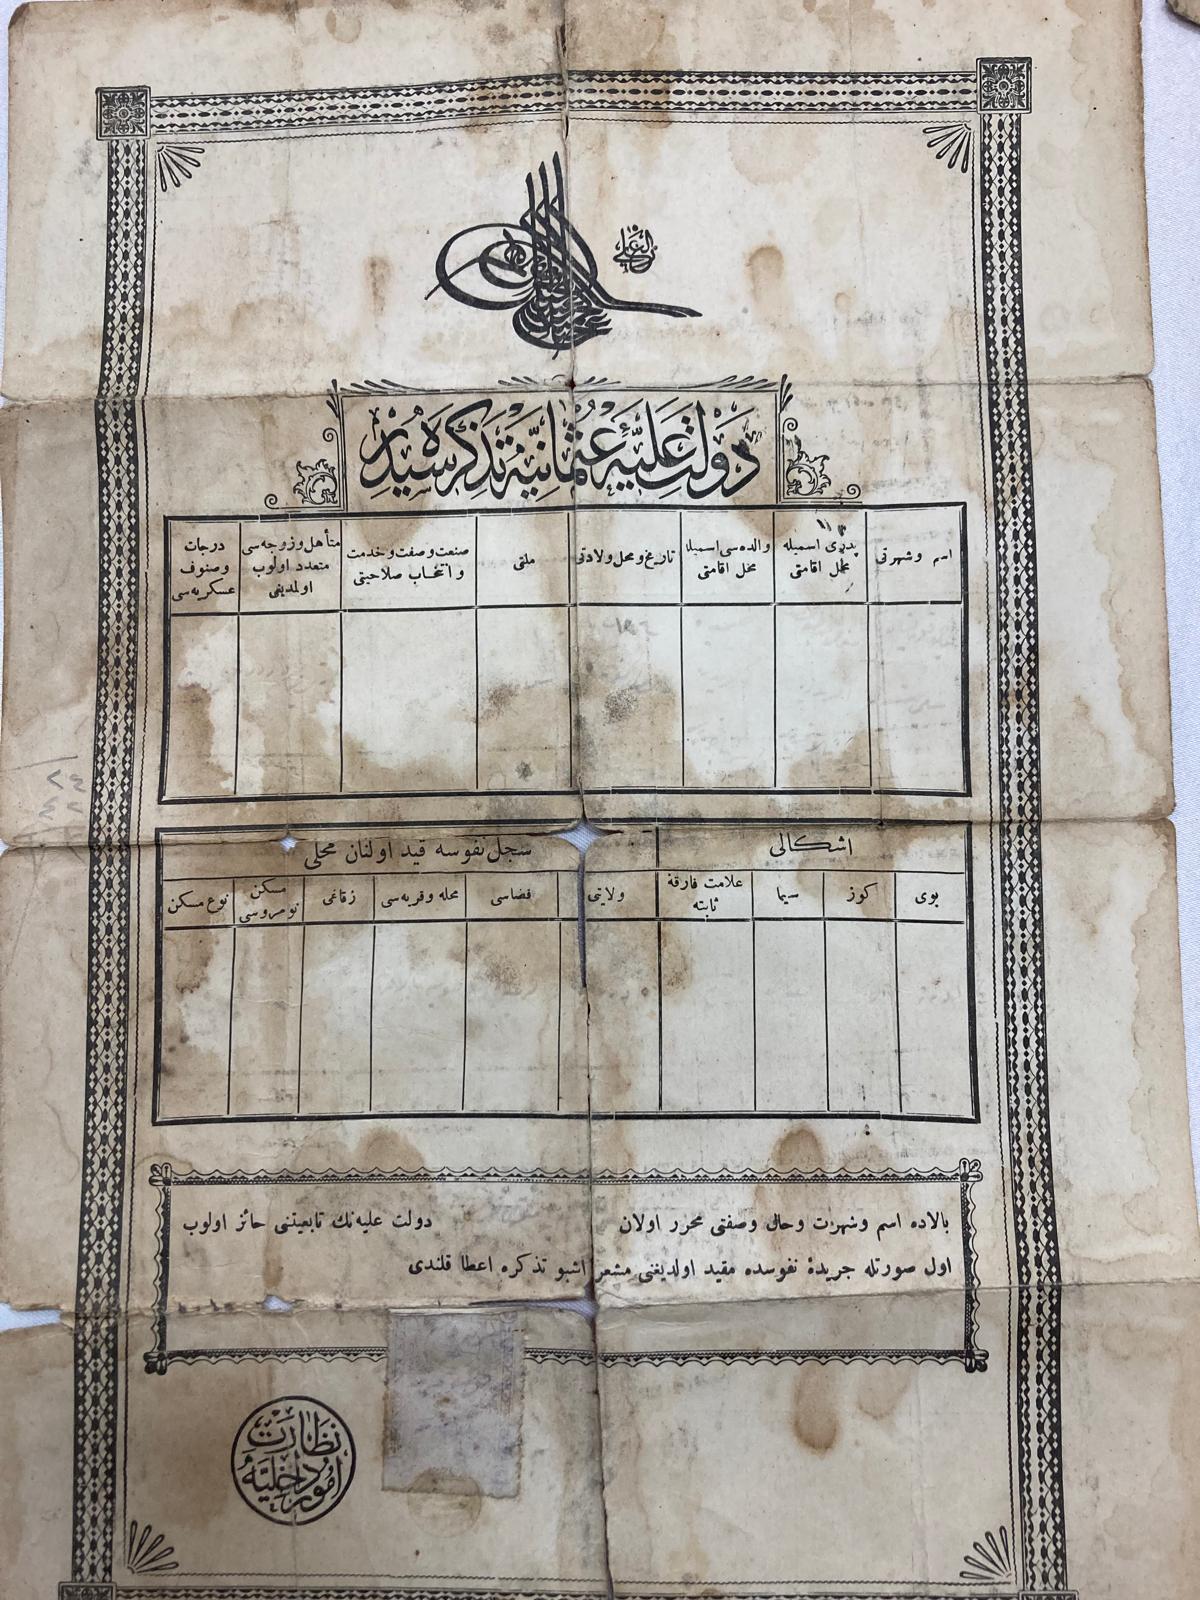 الغازی
دولت علیّهٔ عثمانیّه تذکره سیدر
اسم و شهرتی
پدری اسمیله محل اقامتی
والده‌سی اسمیله محل اقامتی
تاریخ و محل ولادتی
ملتی
صنعت و صفت و خدمت و انتخاب صلاحیتی
متأهل و زوجه‌سی متعدد اولوب اولمدیغی
درجات و صنوف عسکریه‌سی
اشکالی
سجل نفوسه قید اولنان محلی
بوی
کوز
سیما
علامت فارقهٔ ثابته
ولایتی
قضاسی
محله و قریه‌سی
زقاغی
مسکن نومروسی
نوع مسکن
بالاده اسم وشهرت وحال وصفتی محرر اولان دولت علیه‌نك تابعیتنی حائز اولوب
اول صورتله جریدهٔ نفوسده مقید اولدیغنی مشعر اشبو تذکره اعطا قلندی
نظارت امور داخلیّه